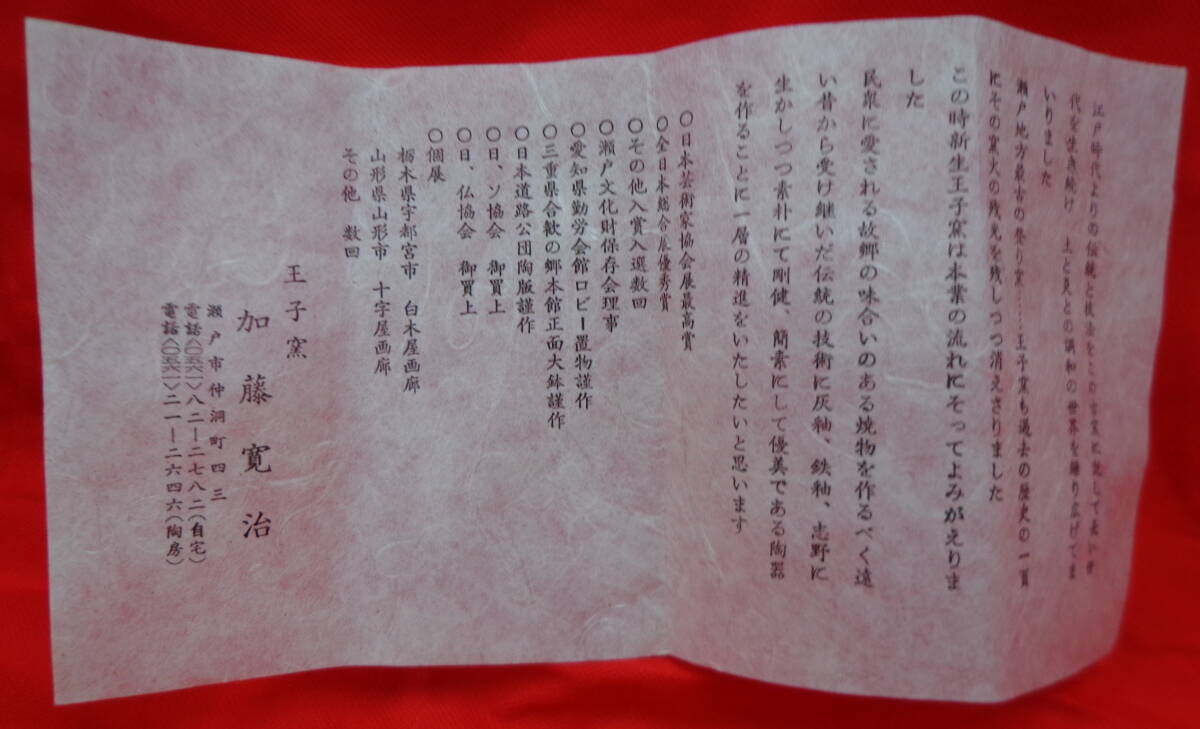 江戸時代よりの伝統と技法をこの古窯に託して永い世
代を生き続け 土と炎との調和の世界を繰り広げてま
いりました
瀬戸地方最古の登り窯……王子窯も過去の歴史の一頁
にその窯火の残光を残しつつ消えさりました
この時新生王子窯は本業の流れにそってよみがえりま
した
民衆に愛される故郷の味合いのある焼物を作るべく遠
い昔から受け継いだ伝統の技術に灰釉、鉄釉、志野に
生かしつつ素朴にて剛健、簡素にして優美である陶器
を作ることに一層の精進をいたしたいと思います
〇日本芸術家協会展最高賞
〇全日本総合展優秀賞
〇その他入賞入選数回
〇瀬戸文化財保存会理事
〇愛知県勤労会館ロビー置物謹作
〇三重県合歓の郷本館正面大鉢謹作
〇日本道路公団陶版謹作
〇日、ソ協会 御買上
〇日、仏協会 御買上
〇個展
栃木県宇都宮市 白木屋画廊
山形県山形市 十字屋画廊
その他 数回
王子窯
加藤寛治
瀬戸市仲洞町四三
電話〈〇五六一〉八二ー二七八二(自宅)
電話〈〇五六一〉二一ー二六四六(陶房)